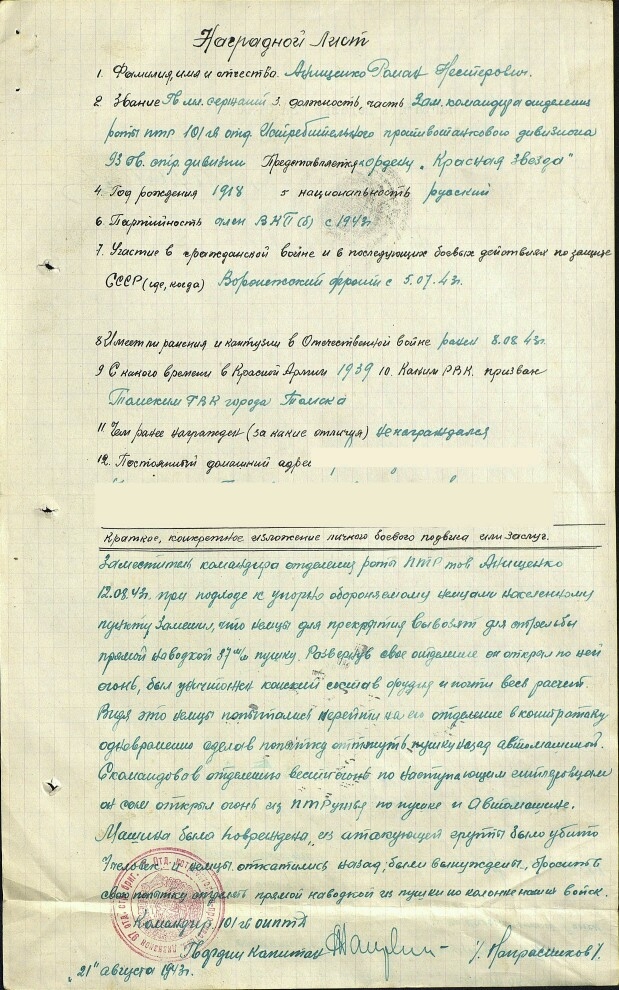 Наградной Лист
1. Фамилия, имя и отчество. Анищенко Роман Нестерович.
2 Звание Гв мл. сержант 3. должность, часть Зам. командира отделения
роты птр 101 гв отд Истребительного противотанкового дивизиона
93 гв. стр. дивизии Представляется к ордену „Красная Звезда"
4. Год рождения 1918 5 национальность русский
6. Партийность член ВКП(б) с 1943г.
7. Участие в гражданской войне и в последующих боевых действиях по защите
СССР (где, когда) Воронежский фронт с 5.07.43г.
8 Имеет ли ранения и контузии в Отечественной войне ранен 8.08 43г.
9 С какого времени в Красной Армии 1939 10. Каким РВК. призван
Томским ГВК города Томска
11. Чем ранее награжден (за какие отличия) не награждался
12. Постоянный домашний адрес
Краткое, конкретное изложение личного боевого подвига или заслуг.
Заместитель командира отделения роты ПТР тов Анищенко
12.08.43г. при подходе к упорно обороняемому немцами населенному
пункту, заметил, что немцы для прикрытия вывозят для стрельбы
прямой наводкой 37 м/м пушку. Развернув свое отделение он открыл по ней
огонь, был уничтожен конский состав орудия и почти весь расчет.
Видя это немцы попытались перейти на его отделение в контратаку
одновременно сделав попытку оттянуть пушку назад автомашиной.
Скомандовав отделению вести огонь по наступающим гитлеровцам
он сам открыл огонь из ПТРужья по пушке и Автомашине.
Машина была повреждена, из атакующей группы было убито
7 человек и немцы откатились назад, были вынуждены, бросить
свою попытку стрелять прямой наводкой из пушки по колонне наших войск.
Командир 101 гв оиптд
Гвардии Капитан /Напрасников/.
„21" августа 1943г.